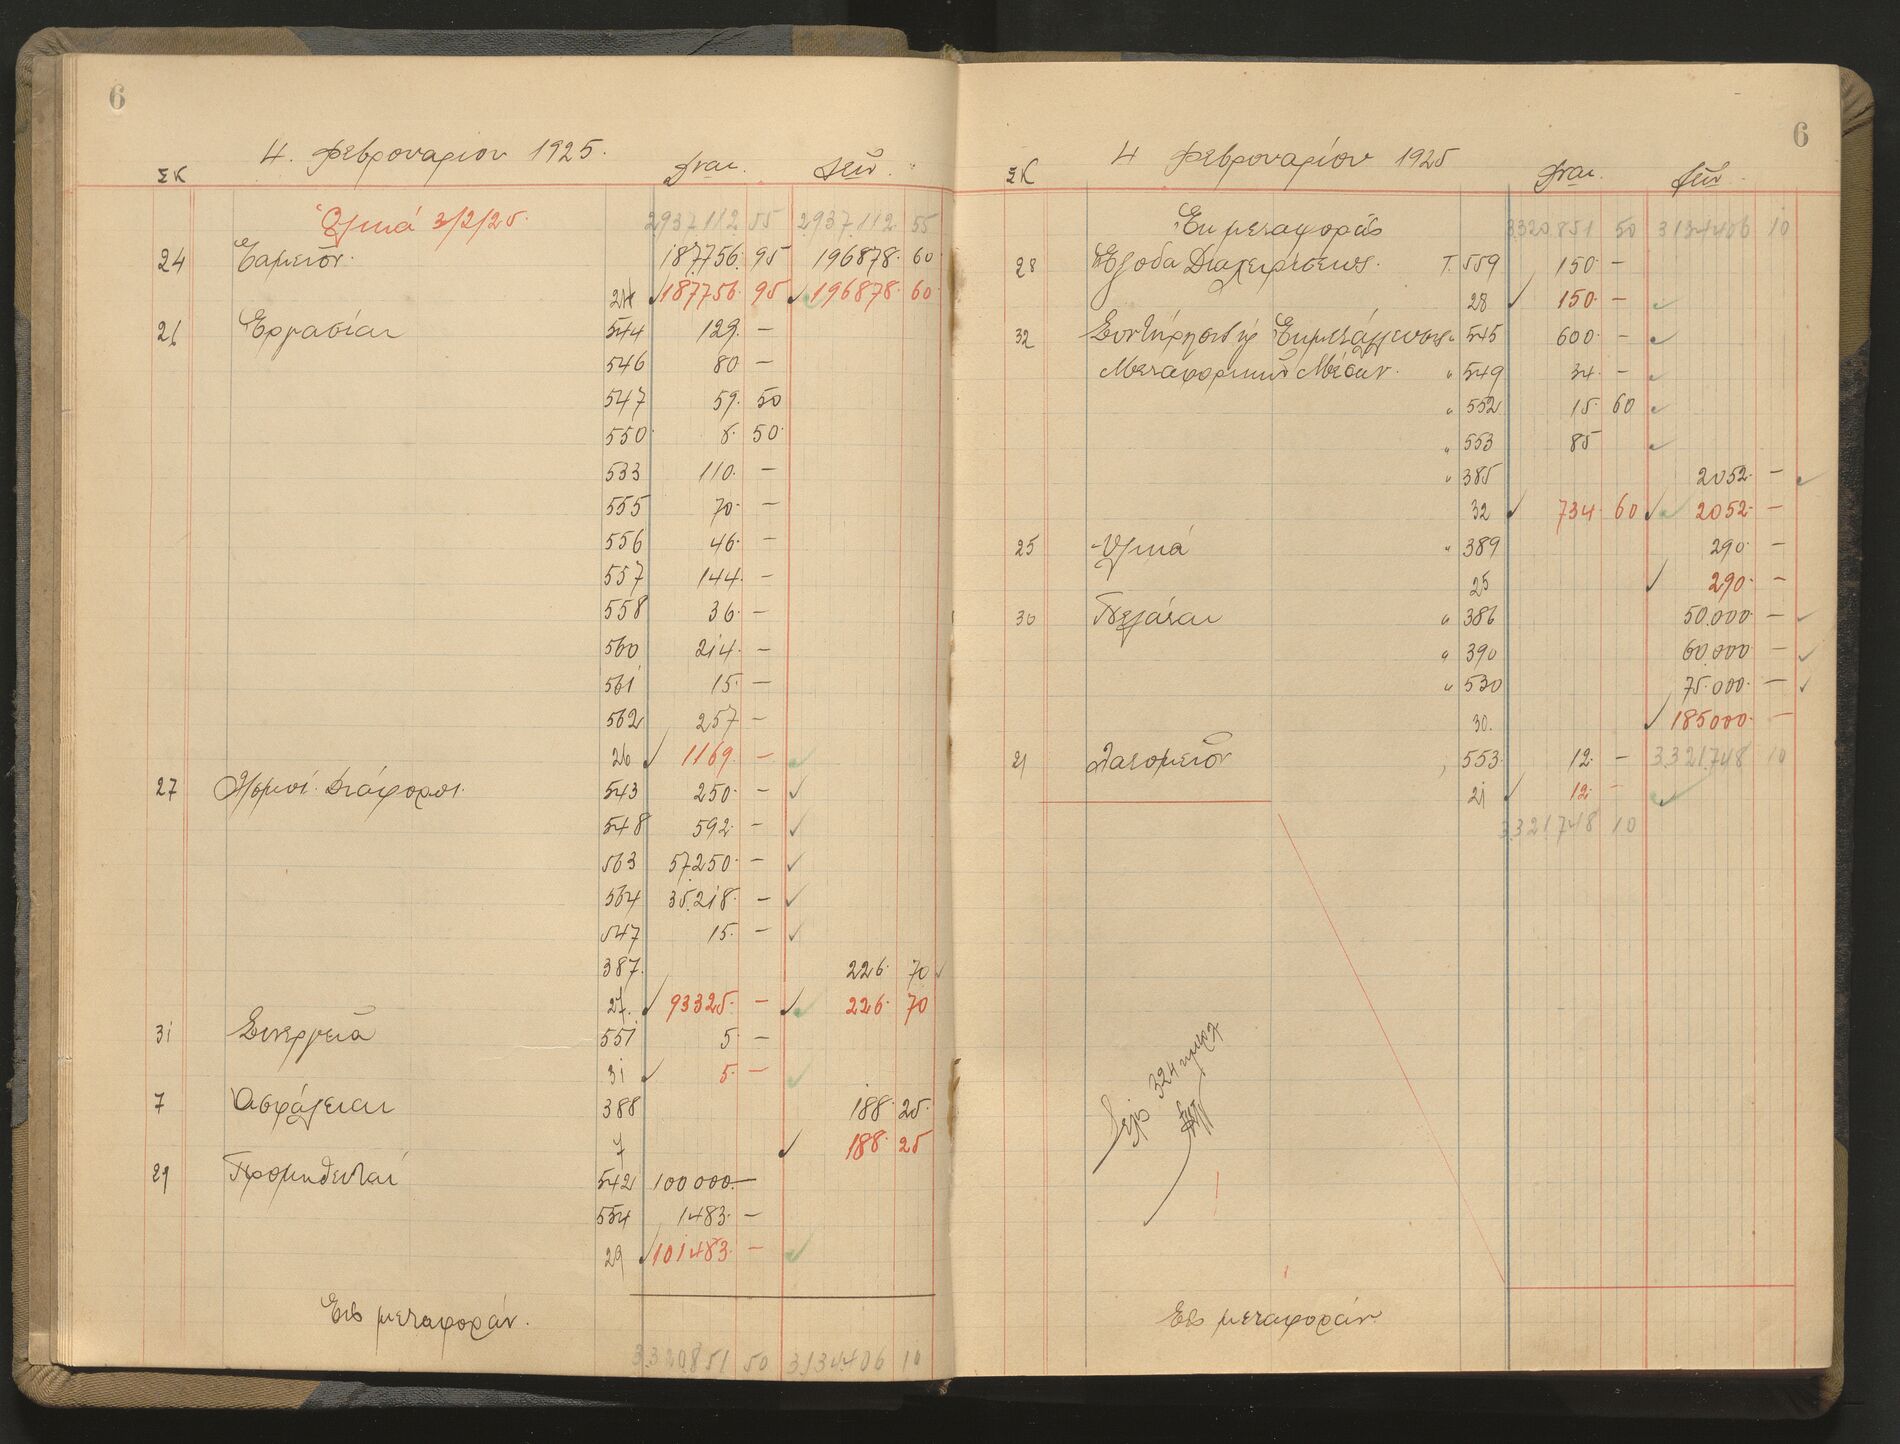 6
4. Φεβρουαρίου 1925.
ΣΚ
Υλικά 3/2/25. 2937.112 55 2937.112 55
24 Ταμείον. 187.756. 95 196878. 60
24 187756. 95 196878. 60
26 Εργασίαι 544 129. —
546 80 —
547 59. 50
550 8. 50
533 110. —
555 70. —
556 46. —
557 144. —
558 36. —
560 214. —
561 15. —
562 257 —
26 1169. —
27 Λ/σμοί Διάφοροι. 543 250. —
548 592. —
563 57250. —
564 35.218. —
547 15. —
387. 226. 70
27. 93325. — 226. 70
31 Συνεργεία 551 5. —
31 5. —
7 Ασφάλειαι 388 188. 25.
7 188. 25
29 Προμηθευταί 542 100000. —
554 1483. —
29 101483. —
Εις μεταφοράν.
3.320.851 50 3.134.406 10
6
4 Φεβρουαρίου 1925
ΣΚ
Εκ μεταφοράς 3320.851 50 3134406 10
28 Έξοδα Διαχειρίσεως. Τ. 559 150. —
28 150. —
32 Συντήρησις Εκμετάλλευσις " 545 600. —
Μεταφορικών Μέσων. " 549 34. —
" 552 15. 60
" 553 85
" 385 2052. —
32 734. 60 2052. —
25 Υλικά " 389 290. —
25 290. —
30 Πελάται " 386 50.000. —
" 390 60.000. —
" 530 75.000. —
30. 185000. —
21 Λατομείον 553 12. — 3.321.748 10
21 12. —
3.321.748 10
324
Εις μεταφοράν.